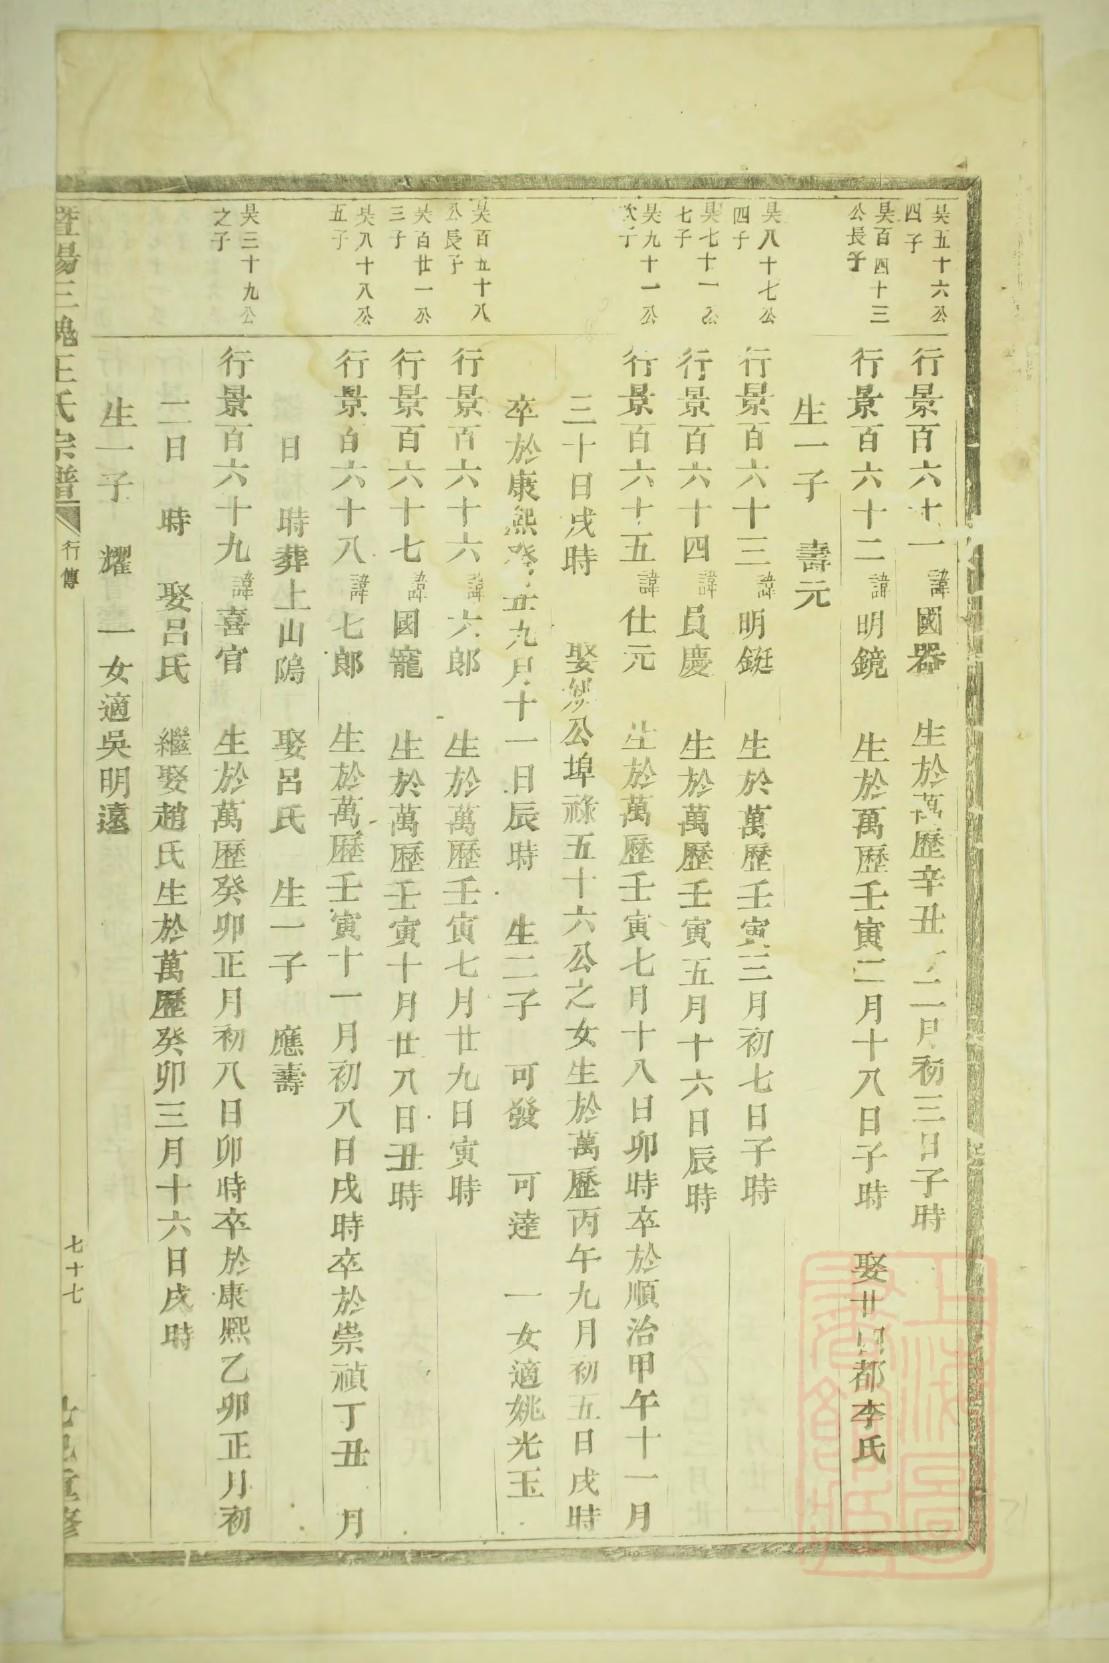 昊五十六公
四子
行景百六十一 諱國器 生於萬歷辛丑十二月初三日子時
昊百四十三
公長子
行景百六十二 諱明鏡 生於萬歷壬寅二月十八日子時 娶廿四都李氏
生一子 壽元
昊八十七公
四子
行景百六十三 諱明鋌 生於萬歷壬寅三月初七日子時
昊七十一公
七子
行景百六十四 諱員慶 生於萬歷壬寅五月十六日辰時
昊九十一公
次子
行景百六十五 諱仕元 生於萬歷壬寅七月十八日卯時卒於順治甲午十一月
三十日戌時 娶 公埠祿五十六公之女生於萬歷丙午九月初五日戌時
卒於康熙 九月十一日辰時 生二子 可發 可達 一女適姚光玉
昊百五十八
公長子
行景百六十六 諱六郎 生於萬歷壬寅七月廿九日寅時
昊百廿一公
三子
行景百六十七 諱國寵 生於萬歷壬寅十月廿八日丑時
昊八十八公
五子
行景百六十八 諱七郎 生於萬歷壬寅十一月初八日戌時卒於崇禎丁丑 月
日 時葬上山隖 娶呂氏 生一子 應壽
昊三十九公
之子
行景百六十九 諱喜官 生於萬歷癸卯正月初八日卯時卒於康熙乙卯正月初
二日 時 娶呂氏 繼娶趙氏生於萬歷癸卯三月十六日戌時
生一子 耀 一女適吳明遠
暨陽三槐王氏宗譜 行傳 七十七 重修
上海圖書館藏